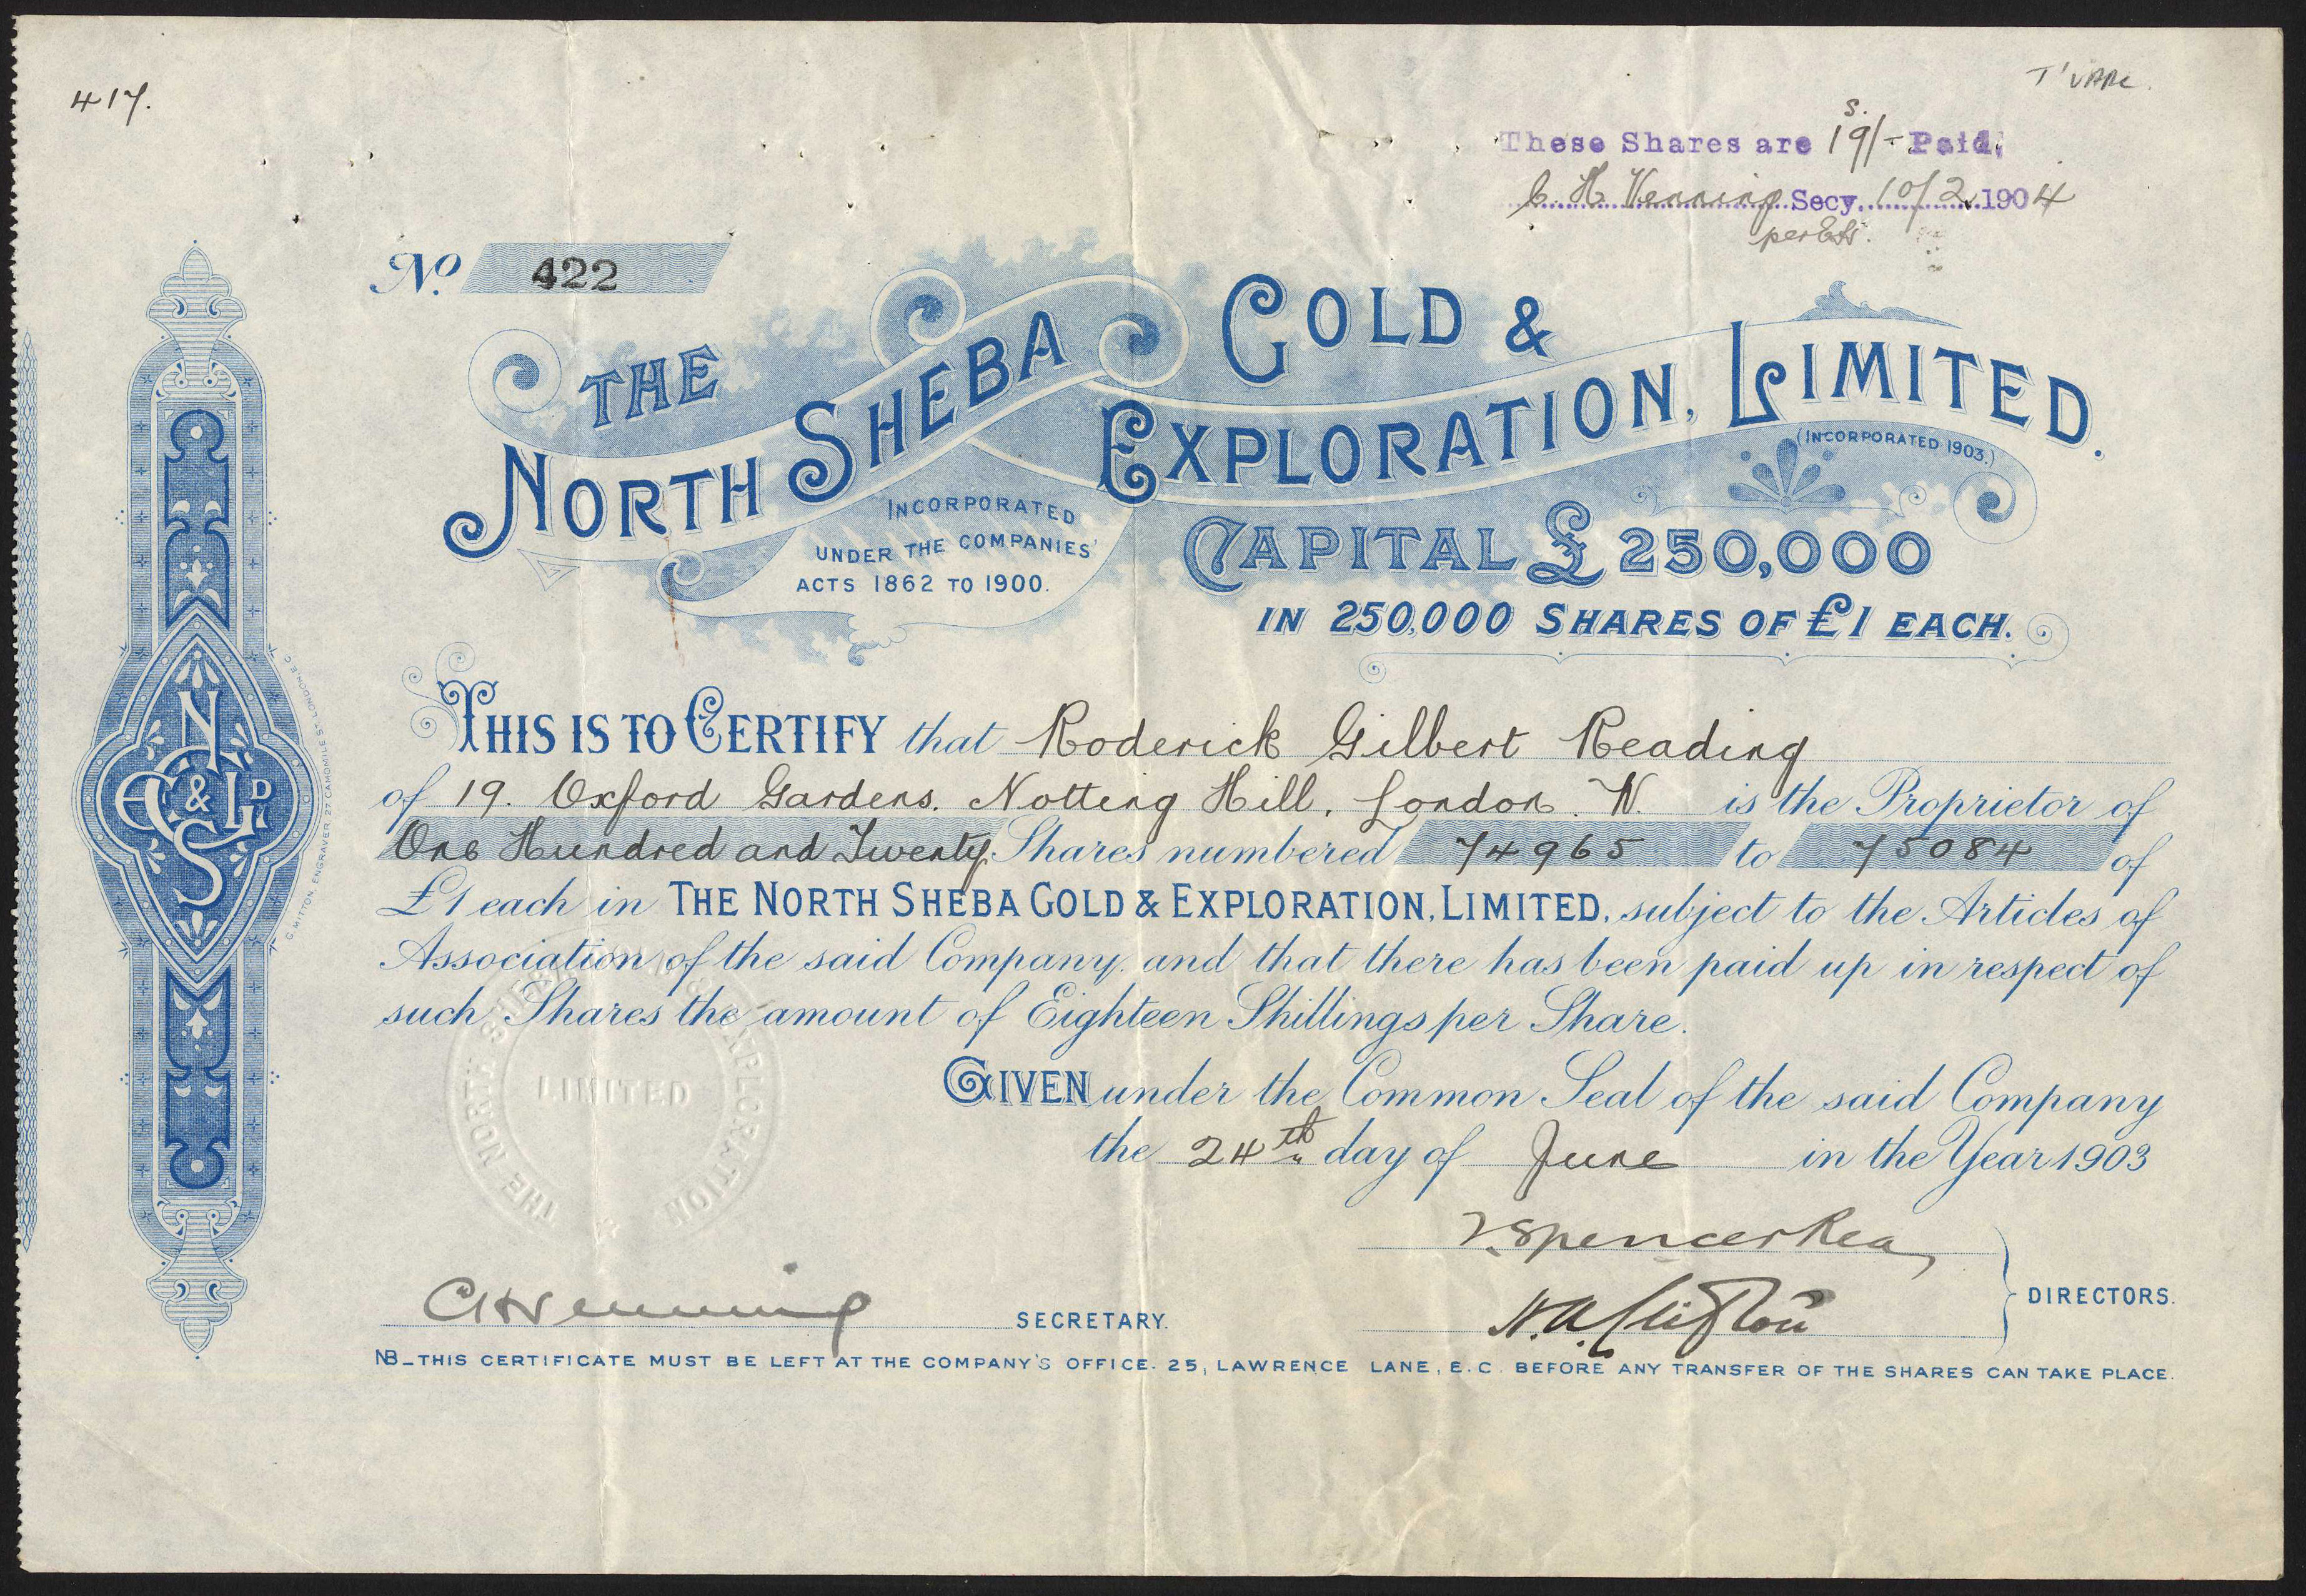 417.
T'vaal.
These Shares are 19/- Paid.
S.
C. H. Henning Secy. 10/2 1904
per
No. 422
THE
NORTH SHEBA
GOLD &
EXPLORATION, LIMITED.
(INCORPORATED 1903.)
INCORPORATED
UNDER THE COMPANIES'
ACTS 1862 TO 1900.
CAPITAL £250,000
IN 250,000 SHARES OF £1 EACH.
THIS IS TO CERTIFY that Roderick Gilbert Reading
of 19. Oxford Gardens. Notting Hill, London. W. is the Proprietor of
One Hundred and Twenty Shares numbered 74965 to 75084 of
£1 each in THE NORTH SHEBA GOLD & EXPLORATION, LIMITED, subject to the Articles of
Association of the said Company, and that there has been paid up in respect of
such Shares the amount of Eighteen Shillings per Share.
GIVEN under the Common Seal of the said Company
the 24th day of June in the Year 1903
THE NORTH SHEBA GOLD & EXPLORATION
LIMITED
J. Spencer Rea
H. A. Clifton
DIRECTORS.
C H Henning
SECRETARY.
NB_THIS CERTIFICATE MUST BE LEFT AT THE COMPANY'S OFFICE. 25, LAWRENCE LANE, E.C. BEFORE ANY TRANSFER OF THE SHARES CAN TAKE PLACE.
N S G & E LD
C. MITTON, ENGRAVER, 27 CAMOMILE ST. LONDON, E.C.